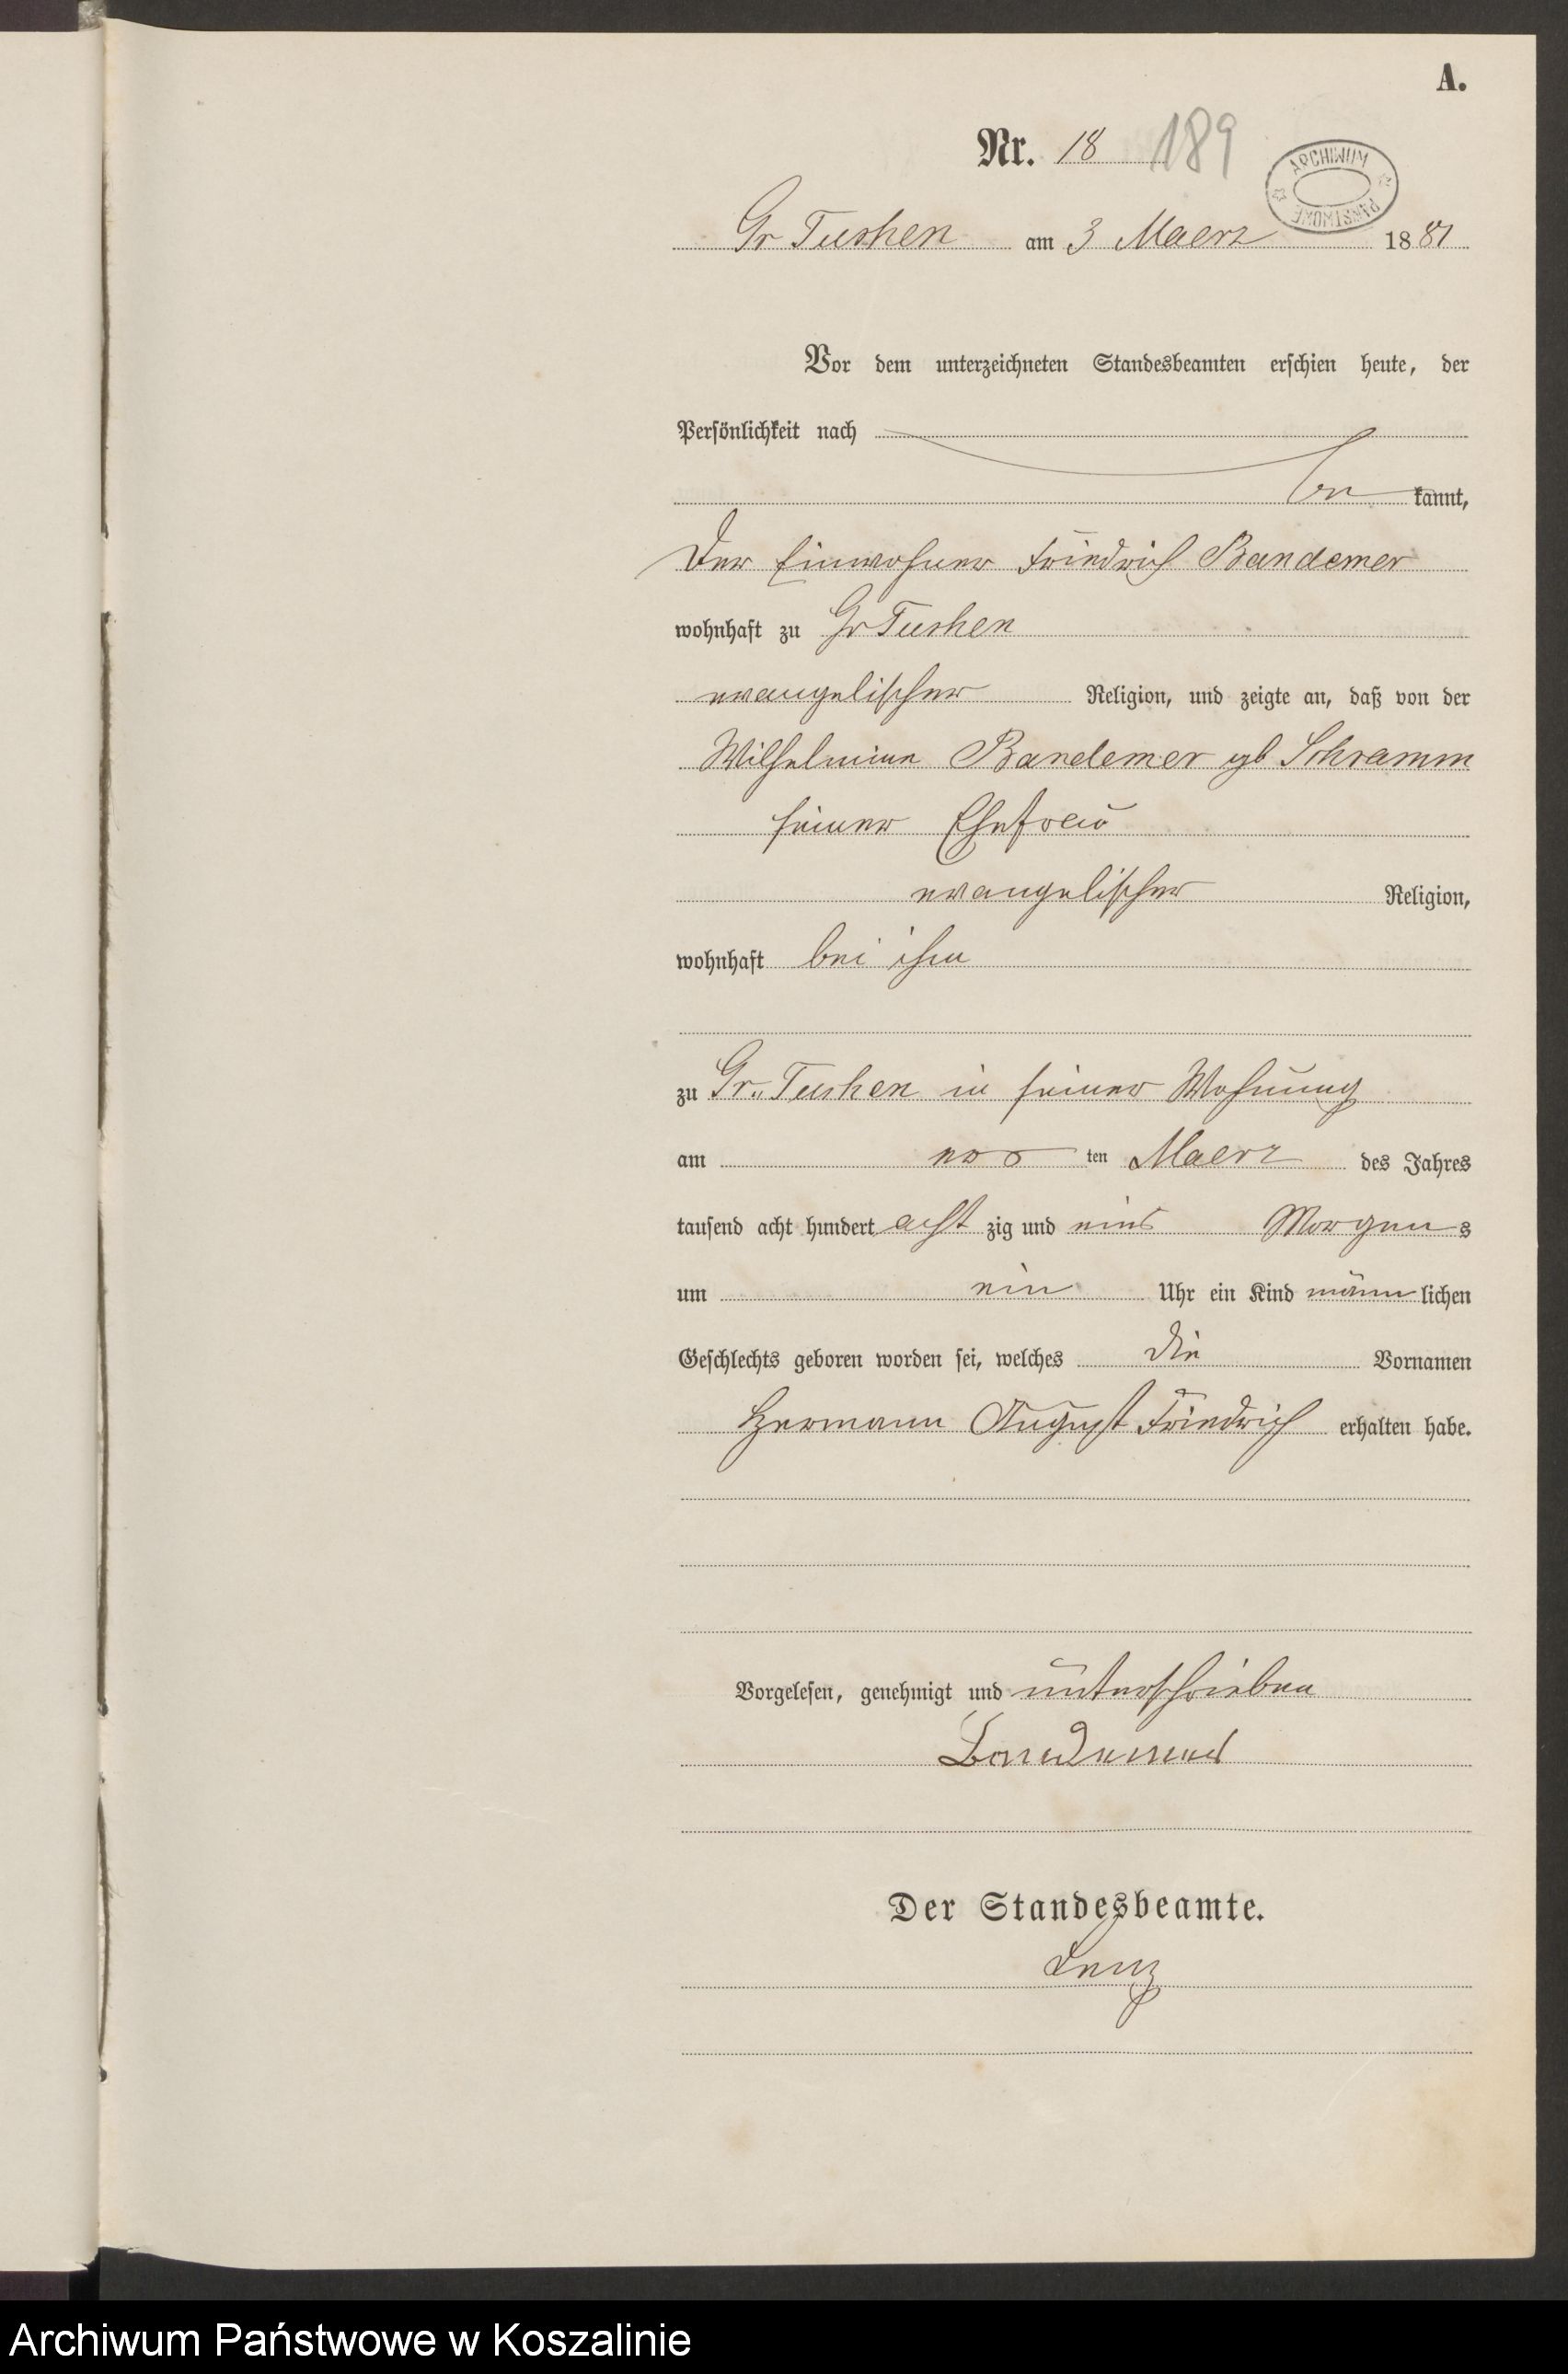 A.
Nr. 18 189
ARCHIWUM PAŃSTWOWE
Gr Tuchen am 3 Maerz 1881
Vor dem unterzeichneten Standesbeamten erschien heute, der
Persönlichkeit nach
be kannt,
Der Einwohner Friedrich Bandemer
wohnhaft zu Gr Tuchen
evangelischer Religion, und zeigte an, daß von der
Wilhelmine Bandemer gb Schramm
seiner Ehefrau
evangelischer Religion,
wohnhaft bei ihm
zu Gr. Tuchen in seiner Wohnung
am ers ten Maerz des Jahres
tausend acht hundert acht zig und eins Morgen s
um ein Uhr ein Kind männ lichen
Geschlechts geboren worden sei, welches die Vornamen
Hermann August Friedrich erhalten habe.
Vorgelesen, genehmigt und unterschrieben
Bandemer
Der Standesbeamte.
Lenz
Archiwum Państwowe w Koszalinie